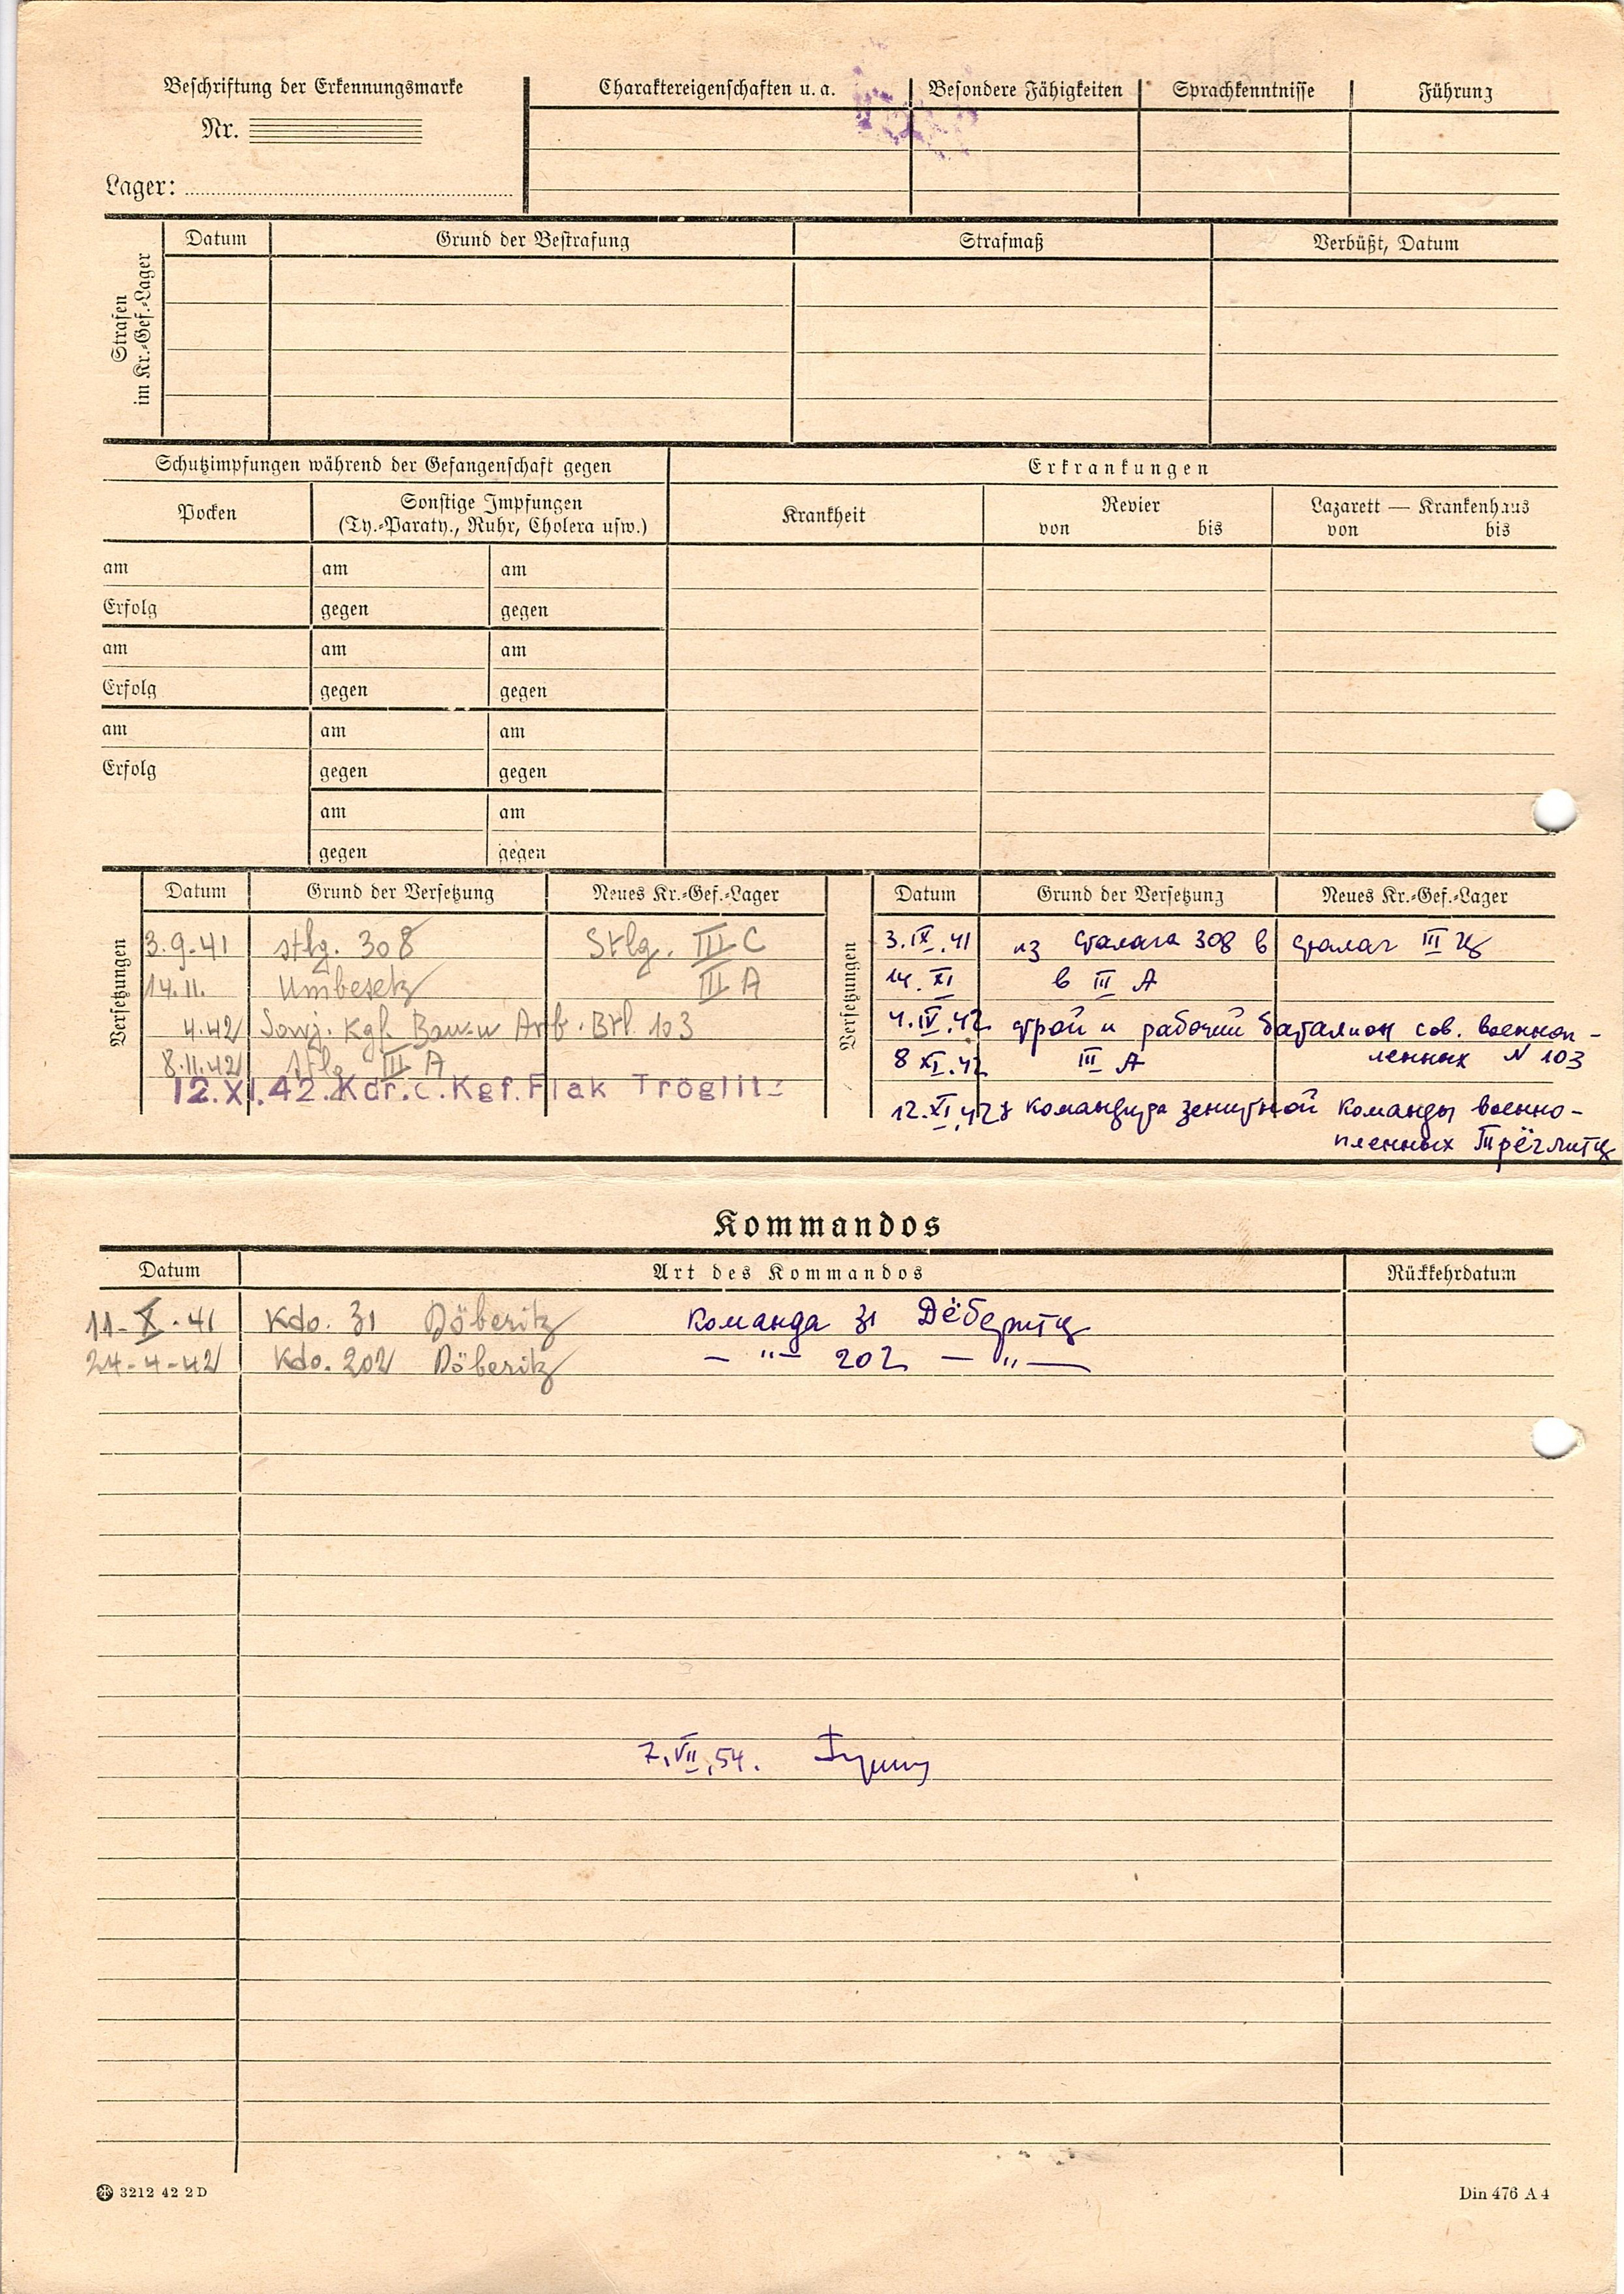 Beschriftung der Erkennungsmarke
Nr.
Lager:
Charaktereigenschaften u. a. Besondere Fähigkeiten Sprachkenntnisse Führung
Strafen
im Kr.-Gef.-Lager
Datum Grund der Bestrafung Strafmaß Verbüßt, Datum
Schutzimpfungen während der Gefangenschaft gegen
Pocken Sonstige Impfungen
(Ty.-Paraty., Ruhr, Cholera usw.)
am am am
Erfolg gegen gegen
am am am
Erfolg gegen gegen
am am am
Erfolg gegen gegen
am am
gegen gegen
Erkrankungen
Krankheit Revier Lazarett — Krankenhaus
von bis von bis
Versetzungen
Datum Grund der Versetzung Neues Kr.-Gef.-Lager
3.9.41 Stlg. 308 Stlg. III C
14.11. Umbesetz III A
4.42 Sowj. Kgf. Bau- u Arb. Btl. 103
8.11.42 Stlg III A
12.XI.42. Kdr. d. Kgf. Flak Tröglitz
Versetzungen
Datum Grund der Versetzung Neues Kr.-Gef.-Lager
3.IX.41 из сталага 308 в сталаг III Ц
14.XI в III А
4.IV.42 строй и рабочий батальон сов. военноп-
ленных N 103
8 XI.42 III А
12.XI.42 командира зенитной команды военно-
пленных Трёглитц
Kommandos
Datum Art des Kommandos Rückkehrdatum
11-X-41 Kdo. 31 Döberitz команда 31 Дёберитц
24-4-42 Kdo. 202 Döberitz — " — 202 — " —
7.VII.54.
3212 42 2 D
Din 476 A 4